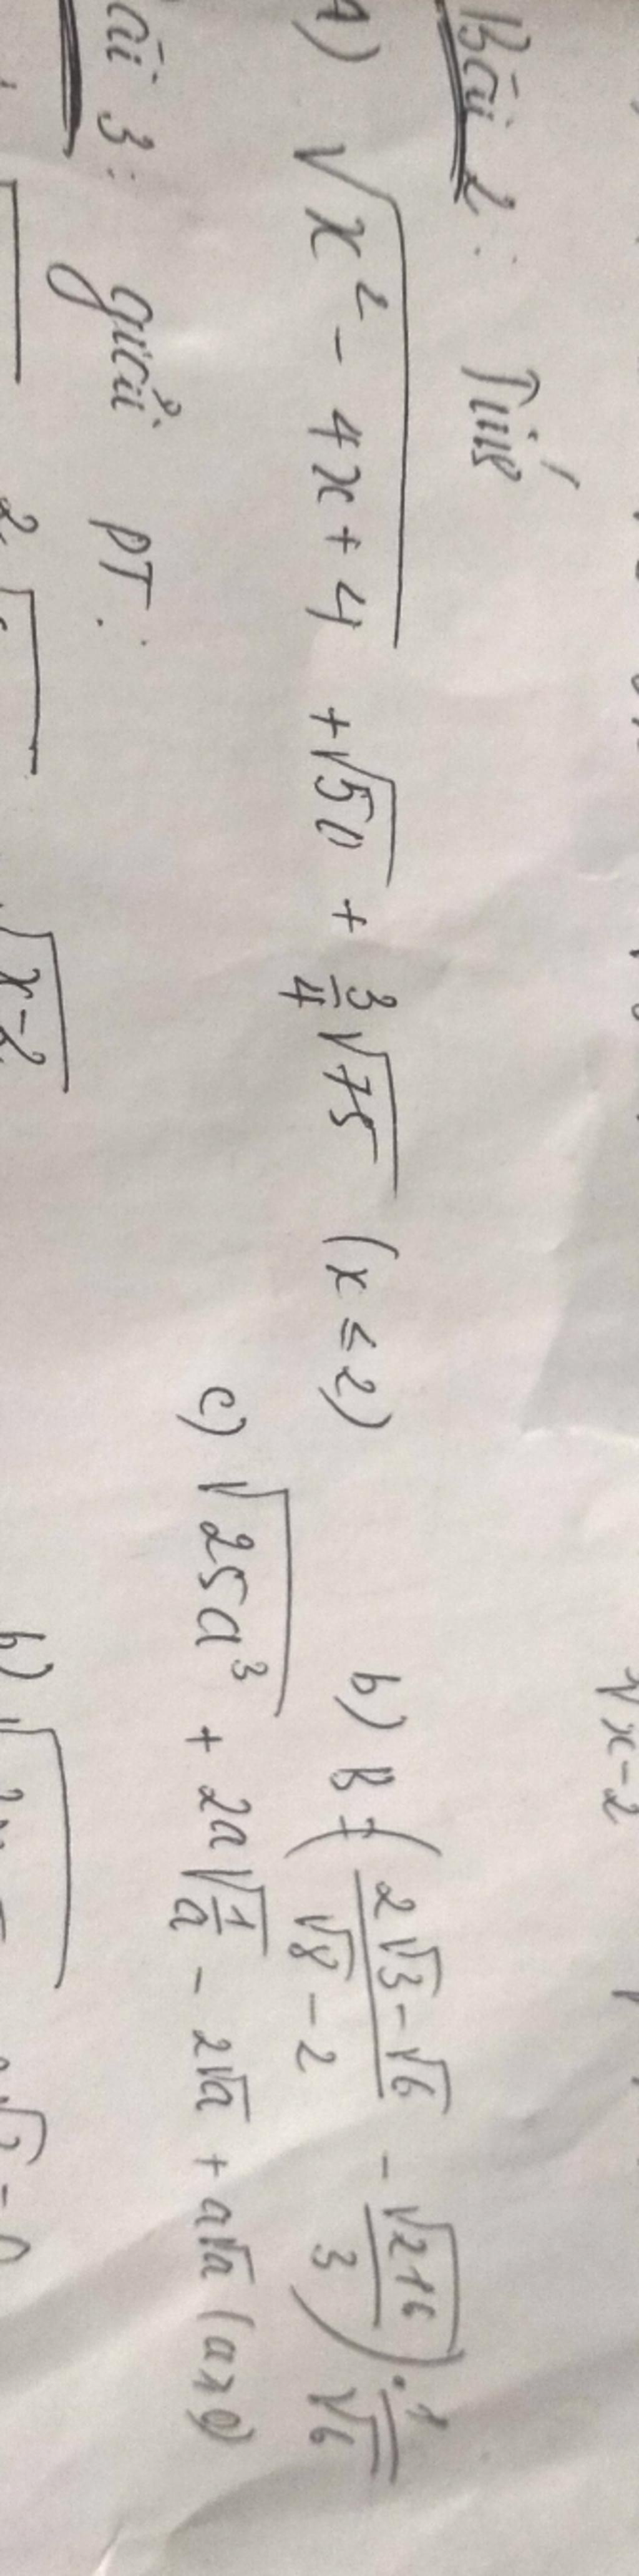 √x-2
Bài 2: Tính
A) √(x² - 4x + 4) + √50 + 3/4 √75 (x ≤ 2)
b) B = ( (2√3 - √6)/(√8 - 2) - √216/3 ) · 1/√6
c) √(25a³) + 2a√(1/a) - 2√a + a√a (a>0)
ài 3: giải PT:
√x-2
b)